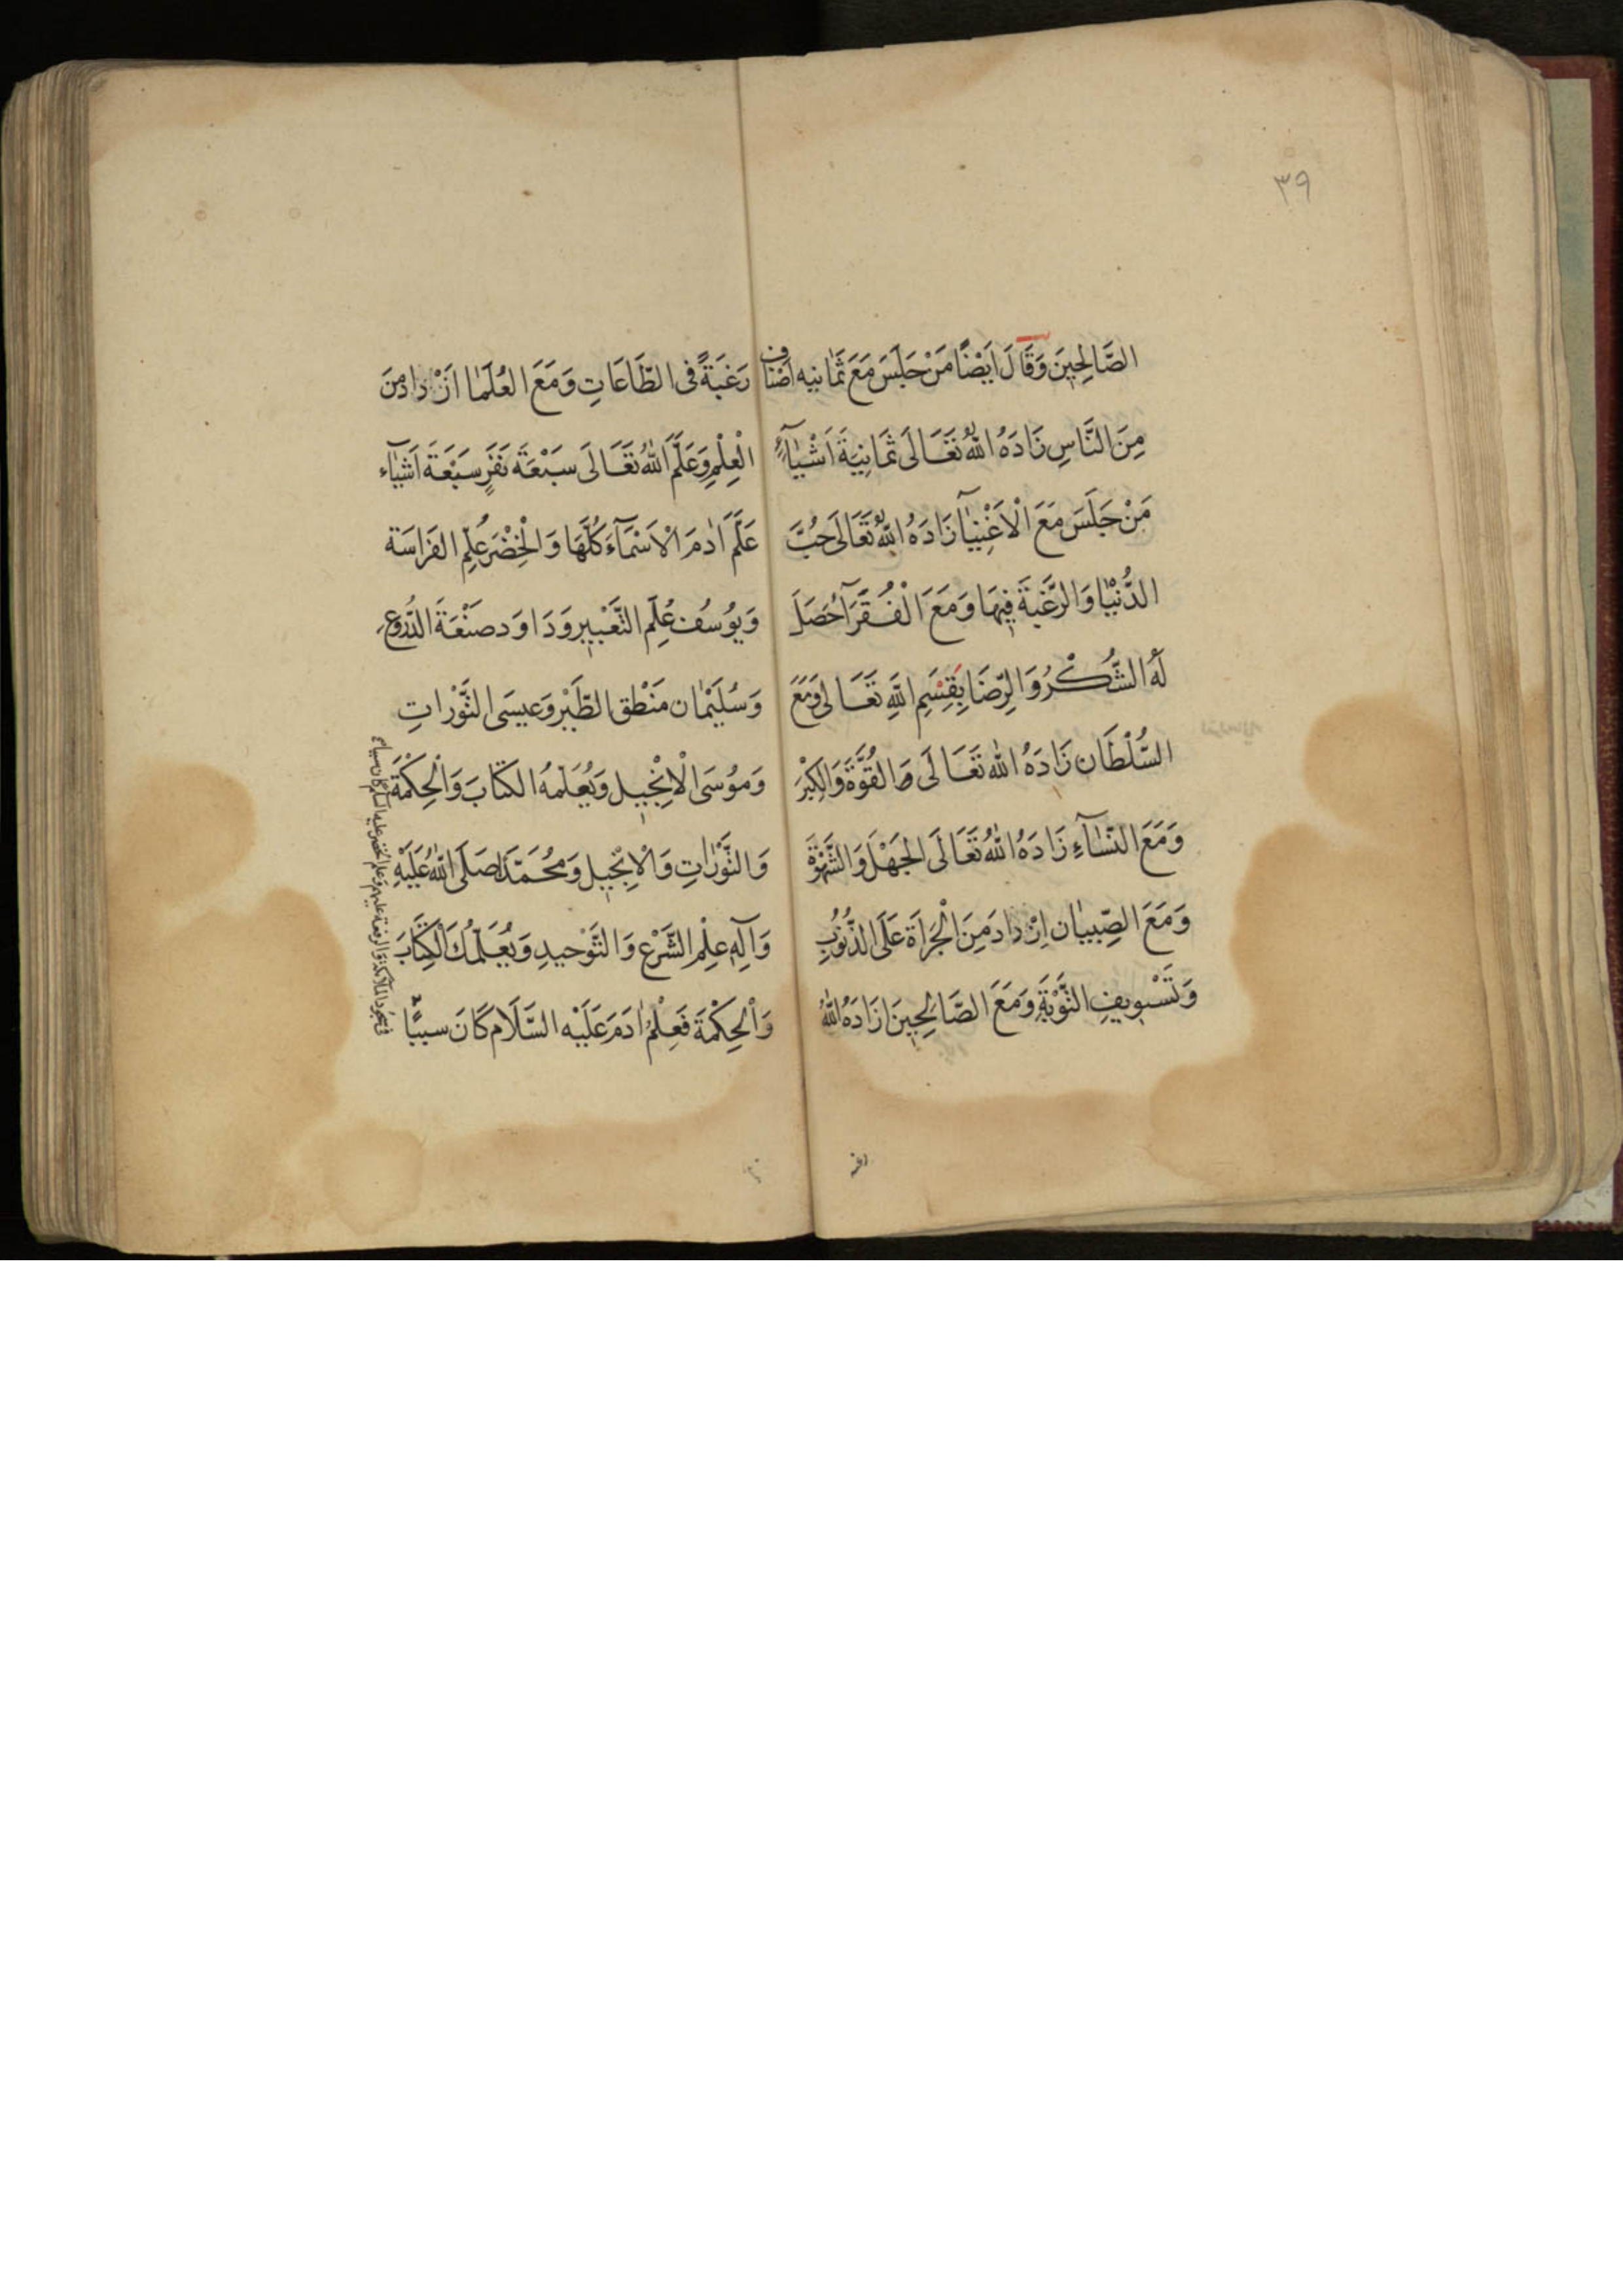 ٣٩
الصَّالِحِينَ وَقَالَ اَيْضًا مَنْ جَلَسَ مَعَ ثَمَانِيه اَصْنَاف
مِنَ النَّاسِ زَادَهُ اللّٰهُ تَعَالَى ثَمَانِيَةَ اَشْيَآءٍ
مَنْ جَلَسَ مَعَ الْاَغْنِيَآ زَادَهُ اللّٰهُ تَعَالَى حُبَّ
الدُّنْيَا وَالرَّغْبَةَ فِيهَا وَمَعَ الْفُقَرَآ حَصَلَ
لَهُ الشُّكْرُ وَالرِّضَا بِقِسْمِ اللّٰهِ تَعَالى وَمَعَ
السُّلْطَان زَادَهُ اللّٰه تَعَالَى القُوَّةَ وَالكِبْرَ
وَمَعَ النِّسَآءِ زَادَهُ اللّٰهُ تَعَالَى الجَهْلَ وَالشَّهْوَةَ
وَمَعَ الصِّبيَان اِزْدَادَ مِنَ الْجَرَاَةَ عَلَى الذُّنُوبِ
وَتَسْوِيفِ التَّوْبَةِ وَمَعَ الصَّالِحِينَ زَادَهُ اللّٰهُ
رغبة
رَغبَةً فى الطَّاعَاتِ وَمَعَ العُلَمَا اَزْدَادَ مِنَ
الْعِلْمِ وَعَلَّمَ اللّٰهُ تَعَالَى سَبْعَةَ نَفَرٍ سَبْعَةَ اَشْيَآء
عَلَّمَ اٰدَمَ الْاَسْمَآءَ كُلَّهَا وَالْخِضْرَ عُلِّم الفَرَاسَةَ
وَيُوسُف عُلِّم التَّعْبِير وَدَاوَد صَنْعَةَ الدُّرُوعِ
وَسُلَيْمَان مَنْطِق الطَّيْر وَعيسَى التَّوْرَاتِ
وَمُوسَى الْاِنْجِيل وَيُعَلِّمُهُ الكتَابَ وَالْحِكْمَةَ
وَالتَّوْرَاتِ وَالْاِنْجِيل وَمُحَمَّدًا صَلَى اللّٰهُ عَلَيْهِ
وَآلِهِ عِلْمَ الشَّرْعِ وَالتَّوْحيدِ وَيُعَلِّمُكَ الْكِتَابَ
وَالْحِكْمَةَ فَعِلْمُ اٰدَمَ عَلَيْه السَّلَام كَانَ سببًا
فى سجود الملائكة والرفعة عليهم وعلم الخضر عليه السلام كان سببا